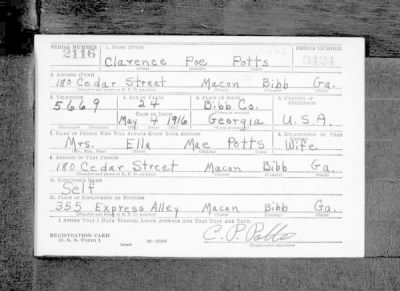 SERIAL NUMBER 1. NAME (Print) ORDER NUMBER
2116 Clarence Poe Potts 3424
(First) (Middle) (Last)
2. ADDRESS (Print)
180 Cedar Street Macon Bibb Ga.
(Number and street or R. F. D. number) (Town) (County) (State)
3. TELEPHONE 4. AGE IN YEARS 5. PLACE OF BIRTH 6. COUNTRY OF CITIZENSHIP
5669 24 Bibb Co.
DATE OF BIRTH
May 4 1916 Georgia U.S.A.
(Exchange) (Number) (Mo.) (Day) (Yr.) (State or country)
7. NAME OF PERSON WHO WILL ALWAYS KNOW YOUR ADDRESS 8. RELATIONSHIP OF THAT PERSON
Mrs. Ella Mae Potts Wife
(Mr., Mrs., Miss) (First) (Middle) (Last)
9. ADDRESS OF THAT PERSON
180 Cedar Street Macon Bibb Ga.
(Number and street or R. F. D. number) (Town) (County) (State)
10. EMPLOYER'S NAME
Self
11. PLACE OF EMPLOYMENT OR BUSINESS
355 Express Alley Macon Bibb Ga.
(Number and street or R. F. D. number) (Town) (County) (State)
I AFFIRM THAT I HAVE VERIFIED ABOVE ANSWERS AND THAT THEY ARE TRUE.
REGISTRATION CARD
D. S. S. FORM 1 C. P. Potts
(Registrant's signature)